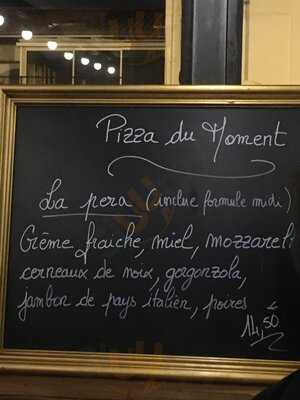 Pizza du Moment
La pera (inclue formule midi)
Crème fraiche, miel, mozzarel
cerneaux de noix, gorgonzola,
jambon de pays italien, poires
14,50